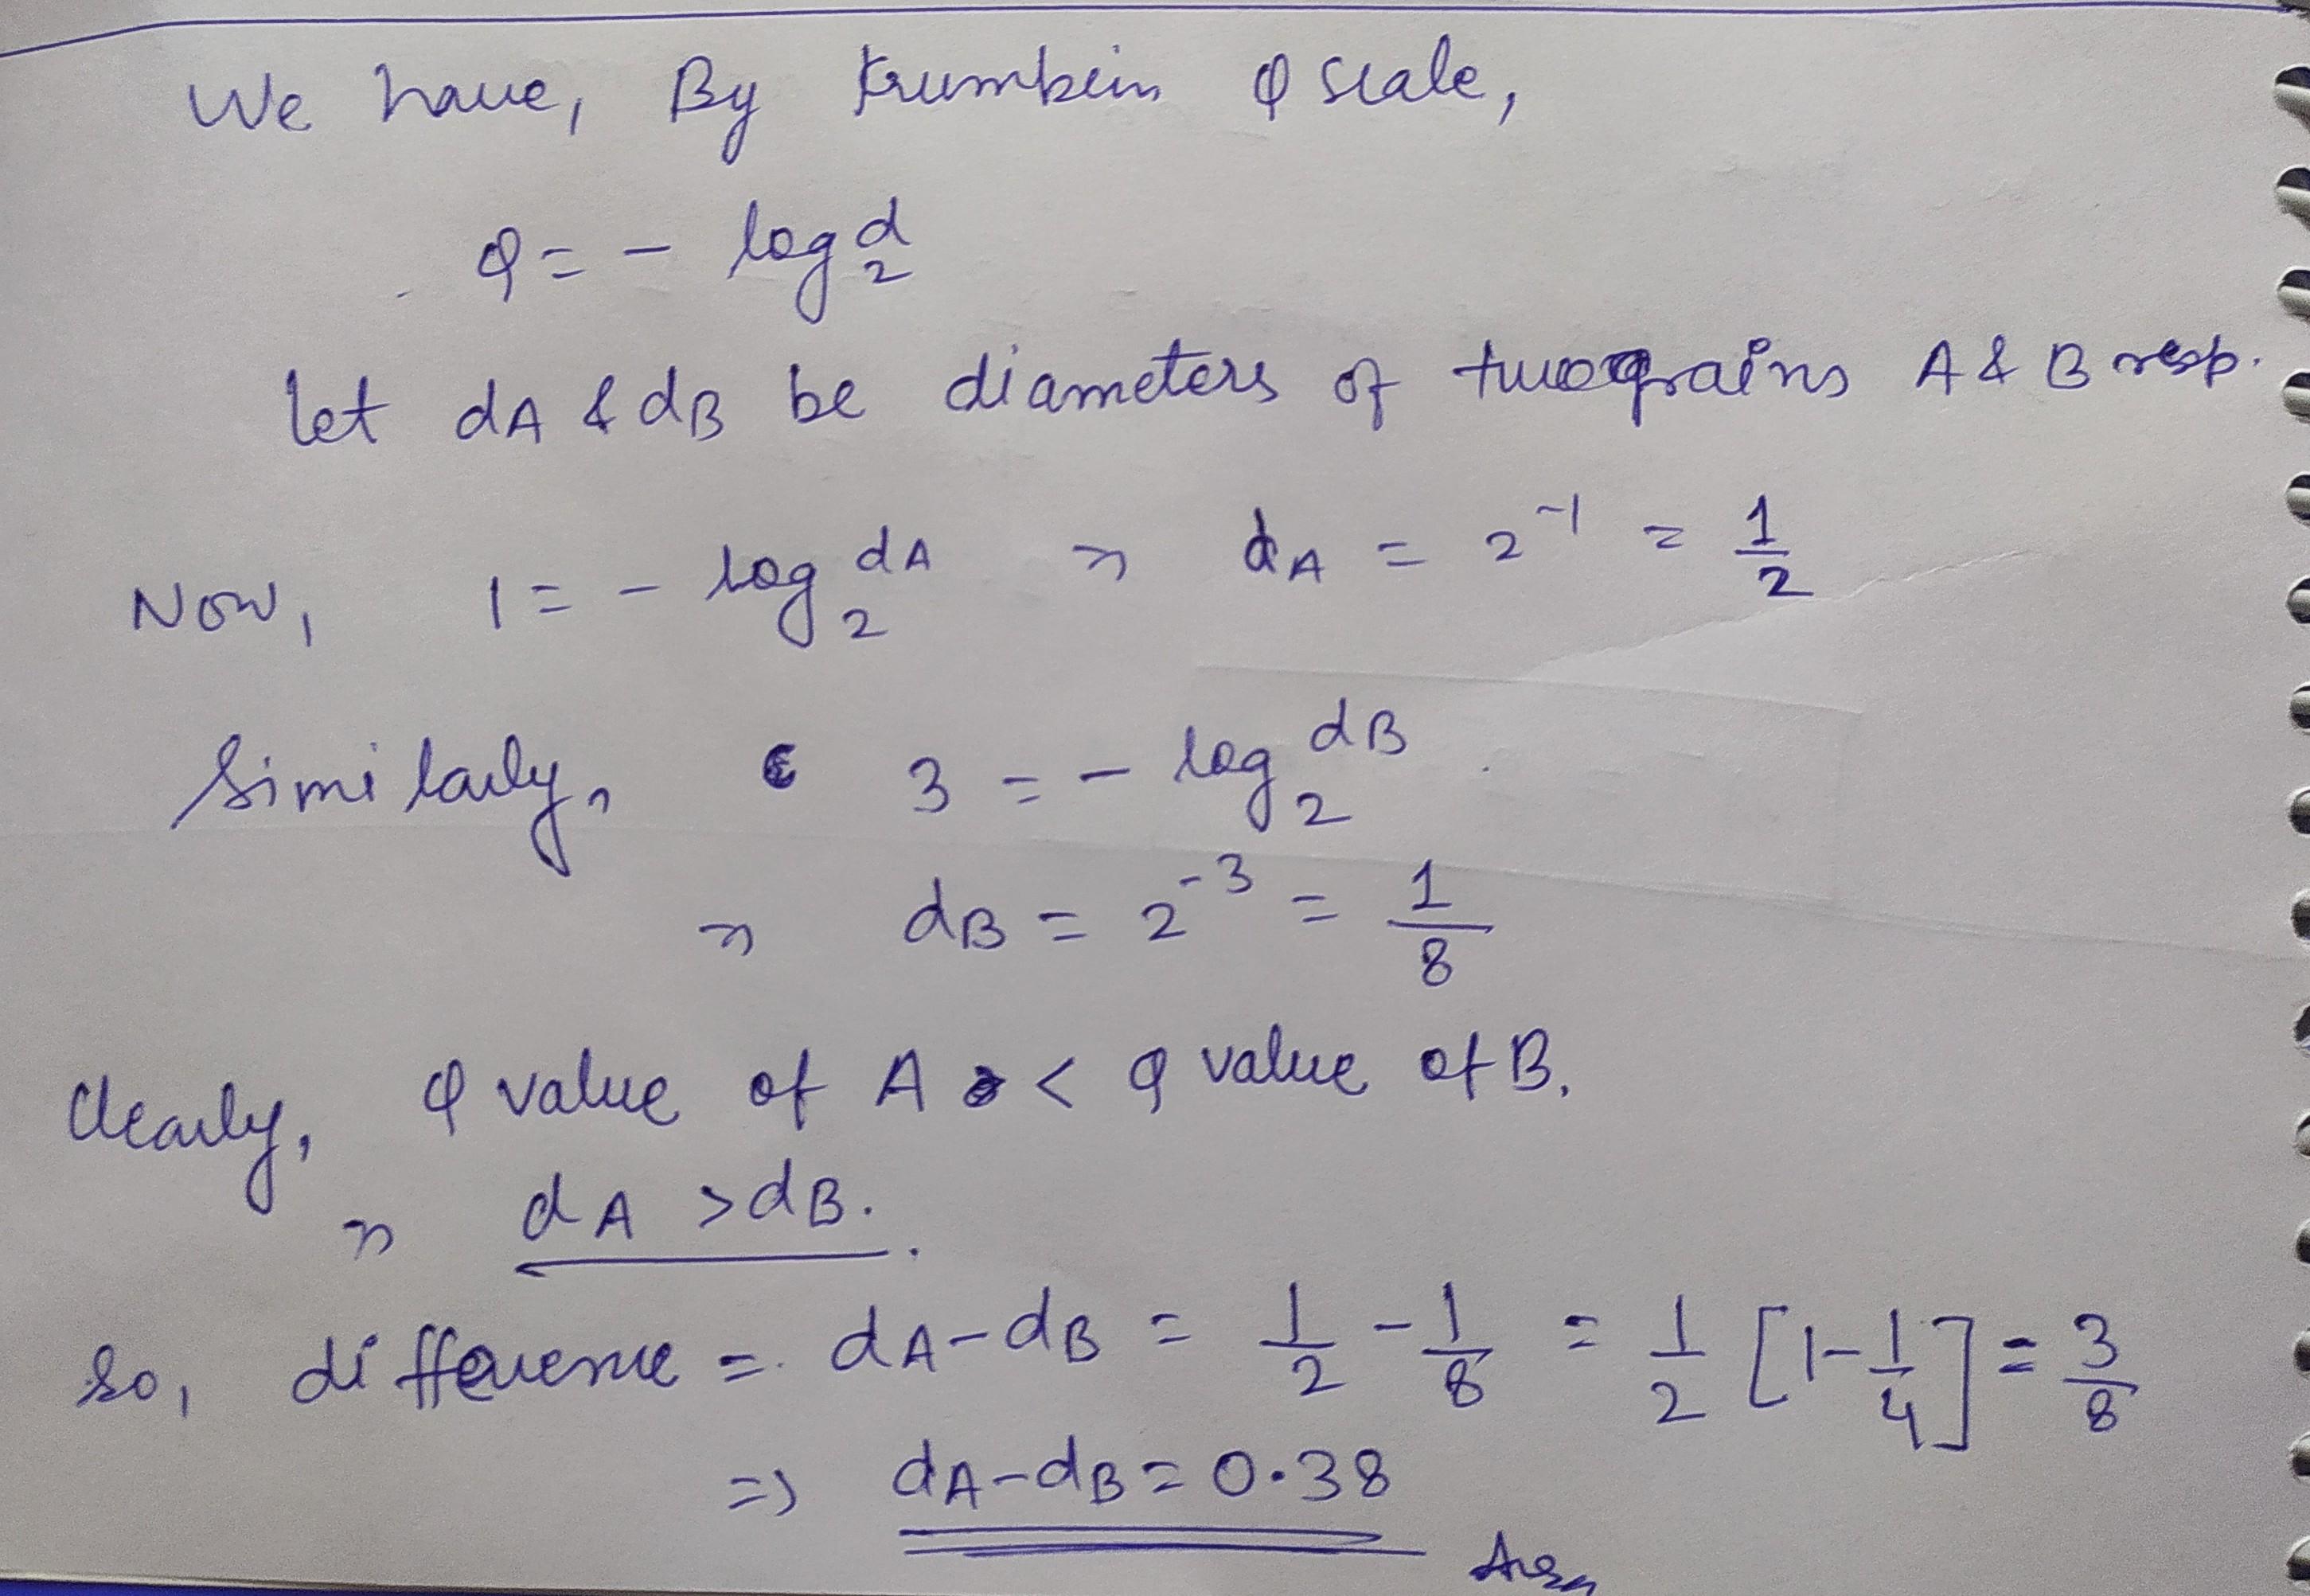 We have, By Krumbein φ scale,
φ = - log₂ d
let dA & dB be diameters of two grains A & B resp.
Now, 1 = - log₂ dA ⇒ dA = 2⁻¹ = 1/2
Similarly, 3 = - log₂ dB
⇒ dB = 2⁻³ = 1/8
Clearly, φ value of A < φ value of B.
⇒ dA > dB.
So, difference = dA - dB = 1/2 - 1/8 = 1/2 [1 - 1/4] = 3/8
⇒ dA - dB = 0.38
Ans